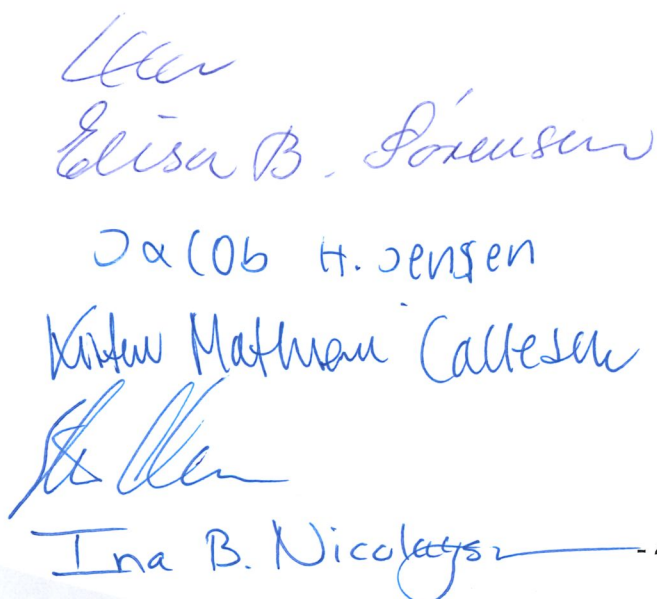 Elisa B. Sørensen
Jacob H. Jensen
Kirsten Mathiasen Callesen
Ina B. Nicolaysen